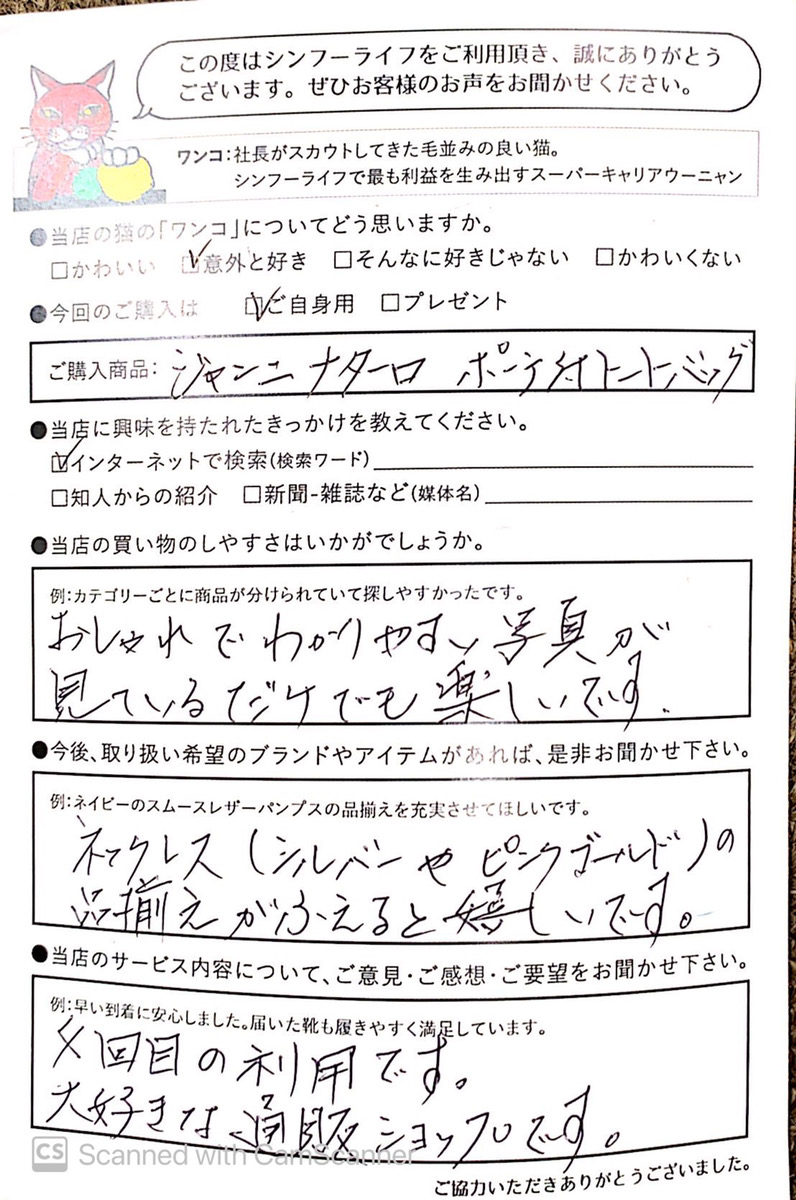 この度はシンフーライフをご利用頂き、誠にありがとう
ございます。ぜひお客様のお声をお聞かせください。
ワンコ:社長がスカウトしてきた毛並みの良い猫。
シンフーライフで最も利益を生み出すスーパーキャリアウーニャン
●当店の猫の「ワンコ」についてどう思いますか。
□かわいい ☑意外と好き □そんなに好きじゃない □かわいくない
●今回のご購入は ☑ご自身用 □プレゼント
ご購入商品: ジャンニナターロ ポーチ付トートバッグ
●当店に興味を持たれたきっかけを教えてください。
☑インターネットで検索(検索ワード)
□知人からの紹介 □新聞-雑誌など(媒体名)
●当店の買い物のしやすさはいかがでしょうか。
例:カテゴリーごとに商品が分けられていて探しやすかったです。
おしゃれでわかりやすい写真が
見ているだけでも楽しいです.
●今後、取り扱い希望のブランドやアイテムがあれば、是非お聞かせ下さい。
例:ネイビーのスムースレザーパンプスの品揃えを充実させてほしいです。
ネックレス(シルバーやピンクゴールド)の
品揃えがふえると嬉しいです。
●当店のサービス内容について、ご意見・ご感想・ご要望をお聞かせ下さい。
例:早い到着に安心しました。届いた靴も履きやすく満足しています。
回目の利用です。
大好きな通販ショップです。
CS Scanned with CamScanner
ご協力いただきありがとうございました。